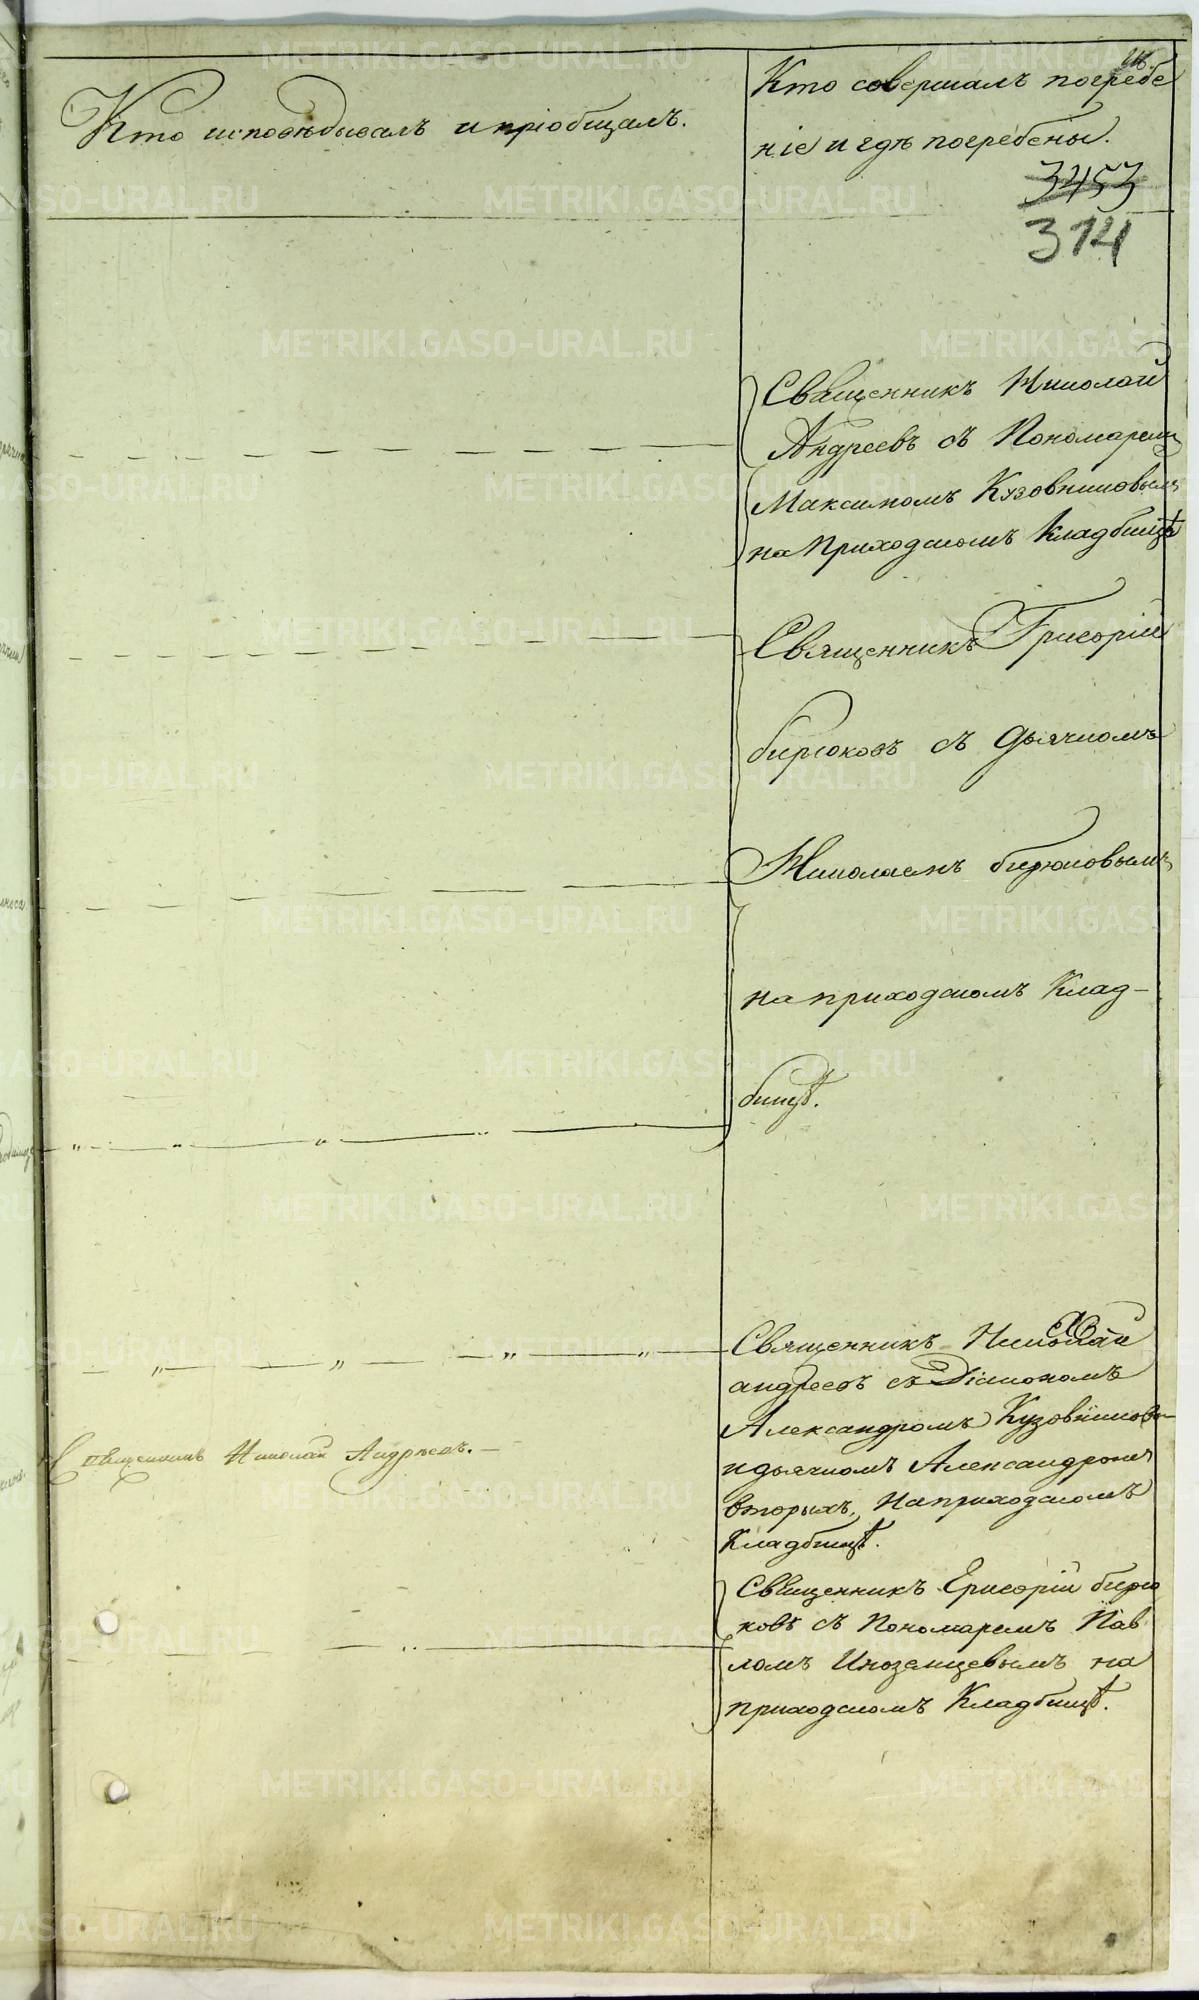 Кто исповѣдывалъ и пріобщалъ.
Кто совершалъ погребе
ніе и гдѣ погребены.
3453
314
Священникъ Николай
Андреевъ съ Пономаремъ
Максимомъ Кузовниковымъ
на Приходскомъ кладбищѣ
Священникъ Григорій
бирюковъ съ дьячкомъ
Николаемъ бирюковымъ
на приходскомъ Клад-
бищѣ.
Священникъ Николай
андреевъ съ Діакономъ
Александромъ Кузовниковы
и дьячкомъ Александромъ
вторыхъ, На приходскомъ
Кладбищѣ.
Священникъ Николай Андрѣевъ.
Священникъ Григорій бирю
ковъ съ Пономаремъ Пав
ломъ Иноземцевымъ на
приходскомъ Кладбищѣ.
METRIKI.GASO-URAL.RU